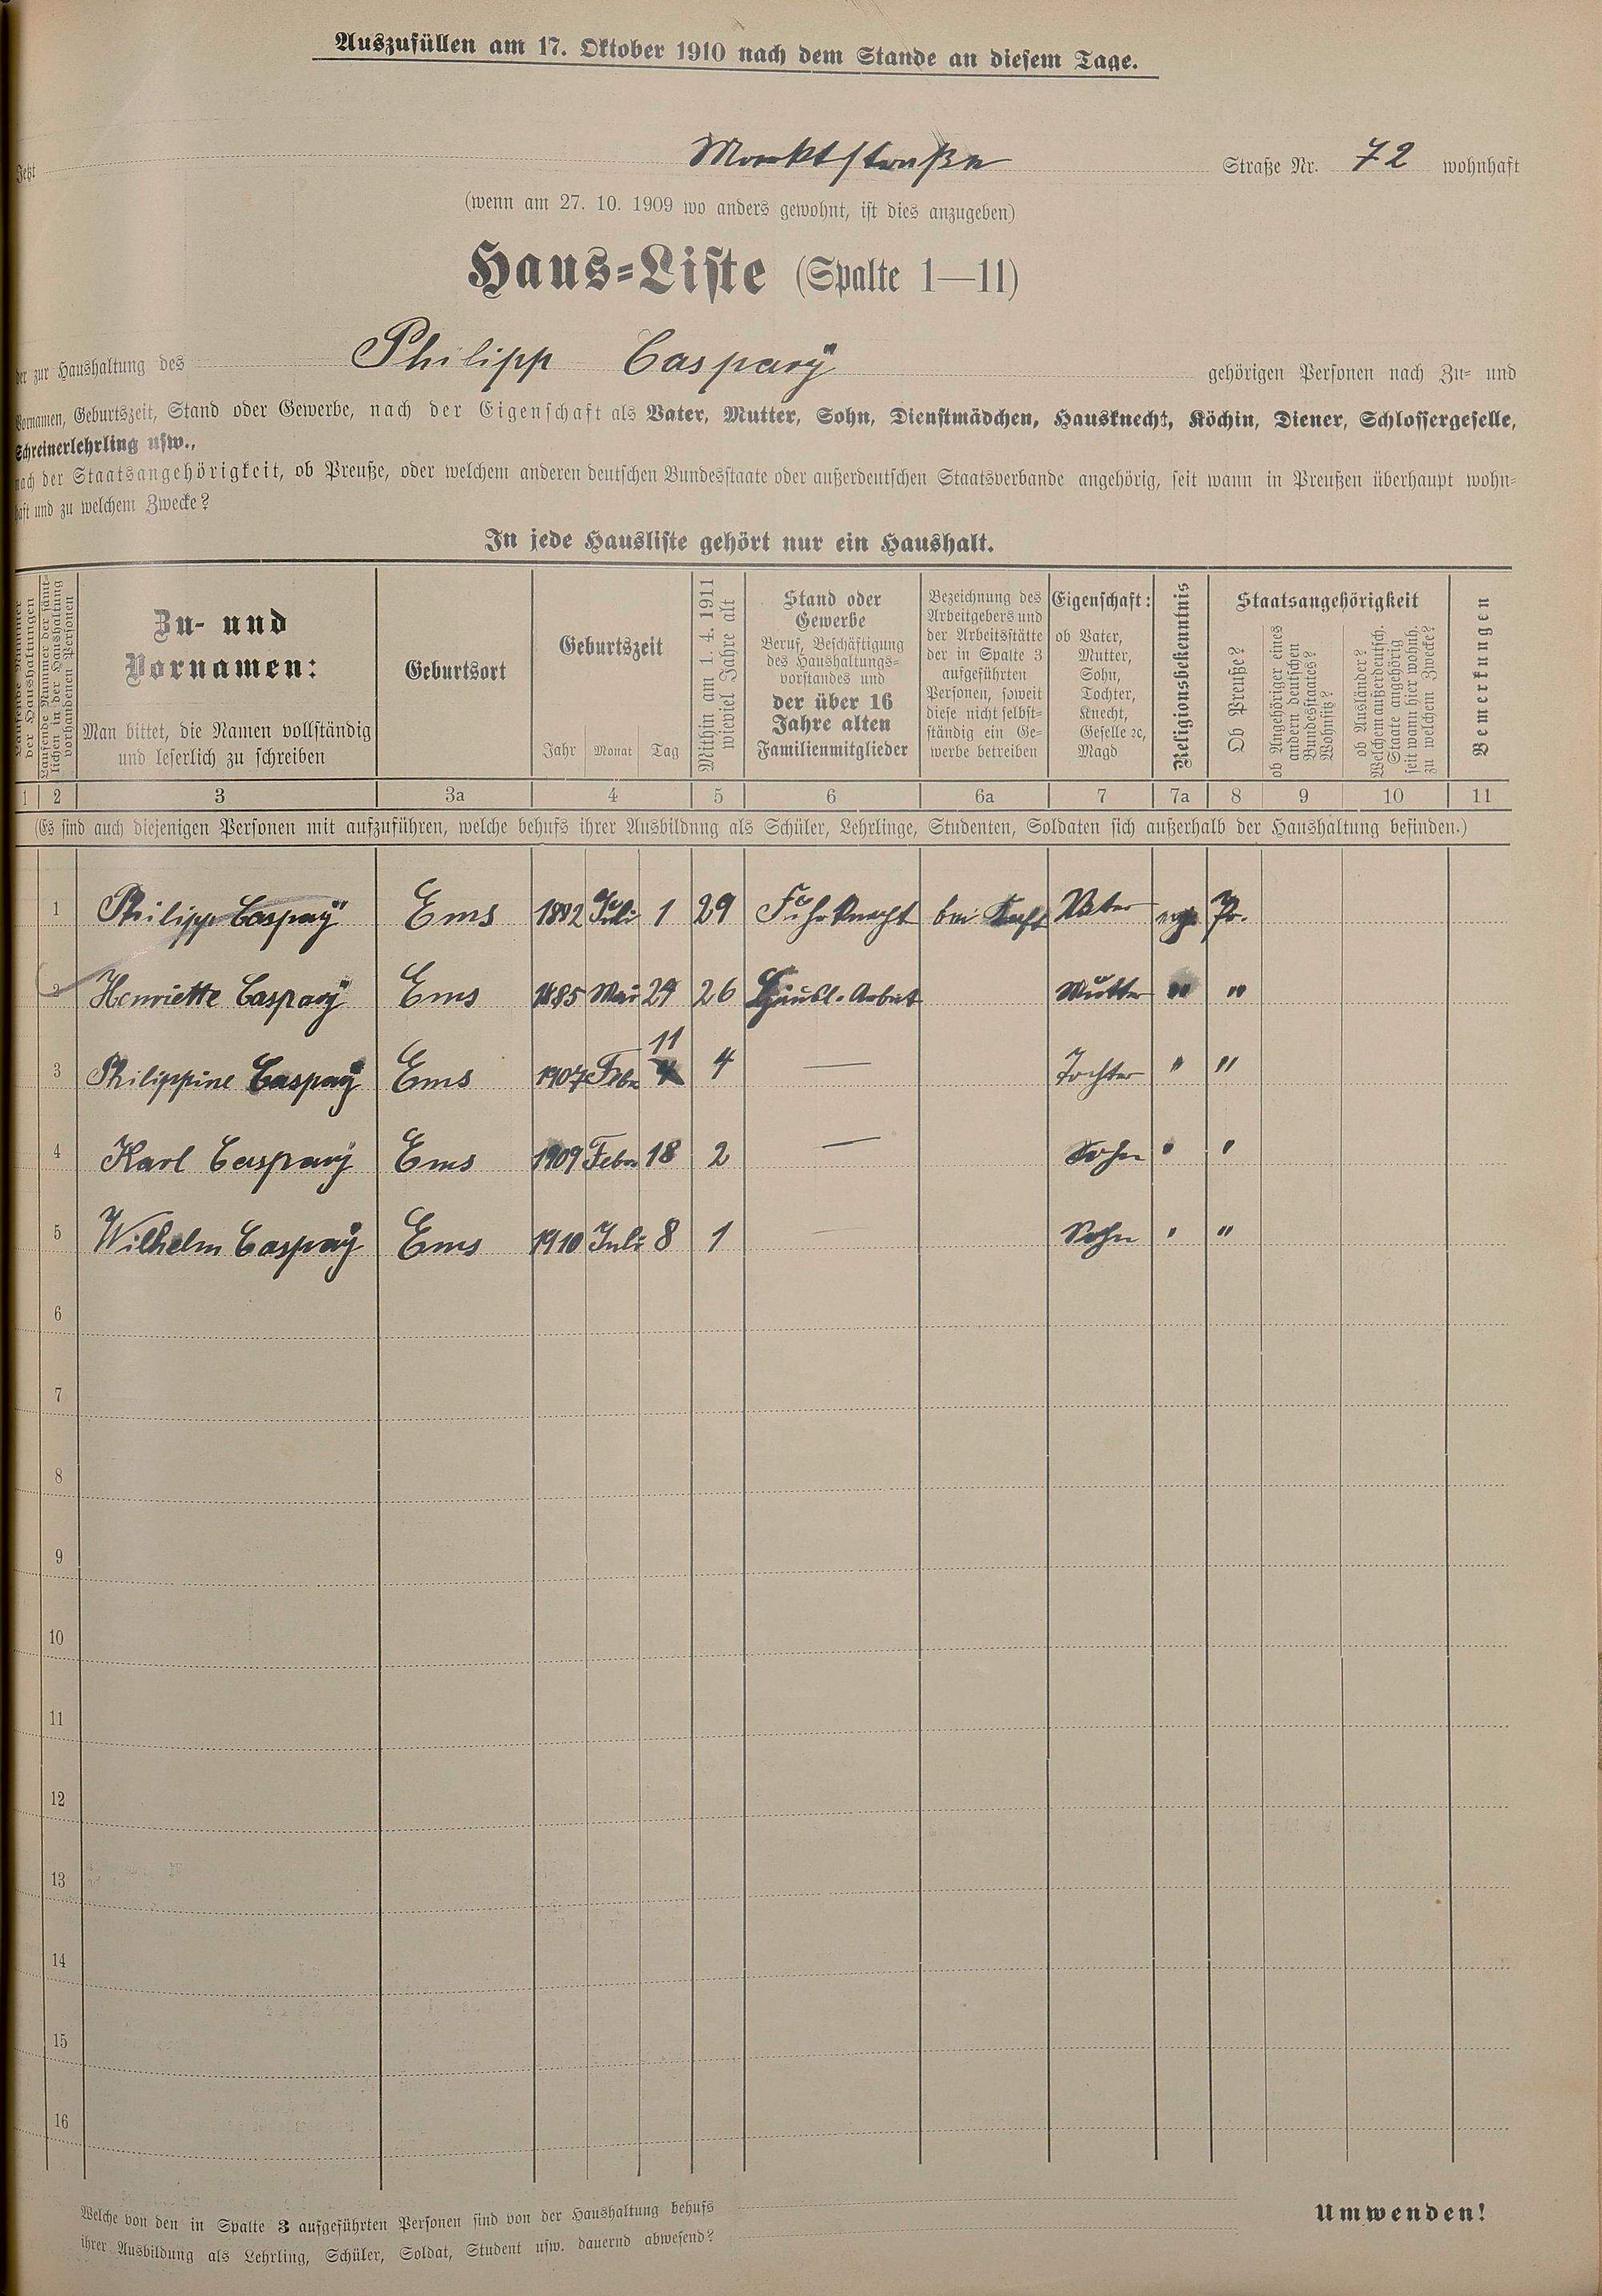 Auszufüllen am 17. Oktober 1910 nach dem Stande an diesem Tage.
Jetzt Marktstraße Straße Nr. 72 wohnhaft
(wenn am 27. 10. 1909 wo anders gewohnt, ist dies anzugeben)
Haus-Liste (Spalte 1—11)
der zur Haushaltung des Philipp Caspary gehörigen Personen nach Zu- und
Vornamen, Geburtszeit, Stand oder Gewerbe, nach der Eigenschaft als Vater, Mutter, Sohn, Dienstmädchen, Hausknecht, Köchin, Diener, Schlossergeselle,
Schreinerlehrling usw.,
nach der Staatsangehörigkeit, ob Preuße, oder welchem anderen deutschen Bundesstaate oder außerdeutschen Staatsverbande angehörig, seit wann in Preußen überhaupt wohn-
haft und zu welchem Zwecke?
In jede Hausliste gehört nur ein Haushalt.
Laufende Nummer
der Haushaltungen
Laufende Nummer der sämt-
lichen in der Haushaltung
vorhandenen Personen
Zu- und
Vornamen:
Man bittet, die Namen vollständig
und leserlich zu schreiben
Geburtsort
Geburtszeit
Jahr Monat Tag
Mithin am 1. 4. 1911
wieviel Jahre alt
Stand oder
Gewerbe
Beruf, Beschäftigung
des Haushaltungs-
vorstandes und
der über 16
Jahre alten
Familienmitglieder
Bezeichnung des
Arbeitgebers und
der Arbeitsstätte
der in Spalte 3
aufgeführten
Personen, soweit
diese nicht selbst-
ständig ein Ge-
werbe betreiben
Eigenschaft:
ob Vater,
Mutter,
Sohn,
Tochter,
Knecht,
Geselle ꝛc,
Magd
Religionsbekenntnis
Staatsangehörigkeit
Ob Preuße?
ob Angehöriger eines
andern deutschen
Bundesstaates?
Wohnsitz?
ob Ausländer?
Welchem außerdeutsch.
Staate angehörig
seit wann hier wohnh.
zu welchem Zwecke?
Bemerkungen
1 2 3 3a 4 5 6 6a 7 7a 8 9 10 11
(Es sind auch diejenigen Personen mit aufzuführen, welche behufs ihrer Ausbildung als Schüler, Lehrlinge, Studenten, Soldaten sich außerhalb der Haushaltung befinden.)
1 Philipp Caspary Ems Juli 1 29 Fuhrknecht bei Vater Pr.
2 Henriette Caspary Ems 1885 Mai 24 26 Häusl. Arbeit Mutter " "
11
3 Philippine Caspary Ems 1907 Febr 4 — Tochter " "
4 Karl Caspary Ems 1909 Febr 18 2 — Sohn " "
5 Wilhelm Caspary Ems 1910 Juli 8 1 — Sohn " "
6
7
8
9
10
11
12
13
14
15
16
Welche von den in Spalte 3 aufgeführten Personen sind von der Haushaltung behufs
ihrer Ausbildung als Lehrling, Schüler, Soldat, Student usw. dauernd abwesend?
Umwenden!